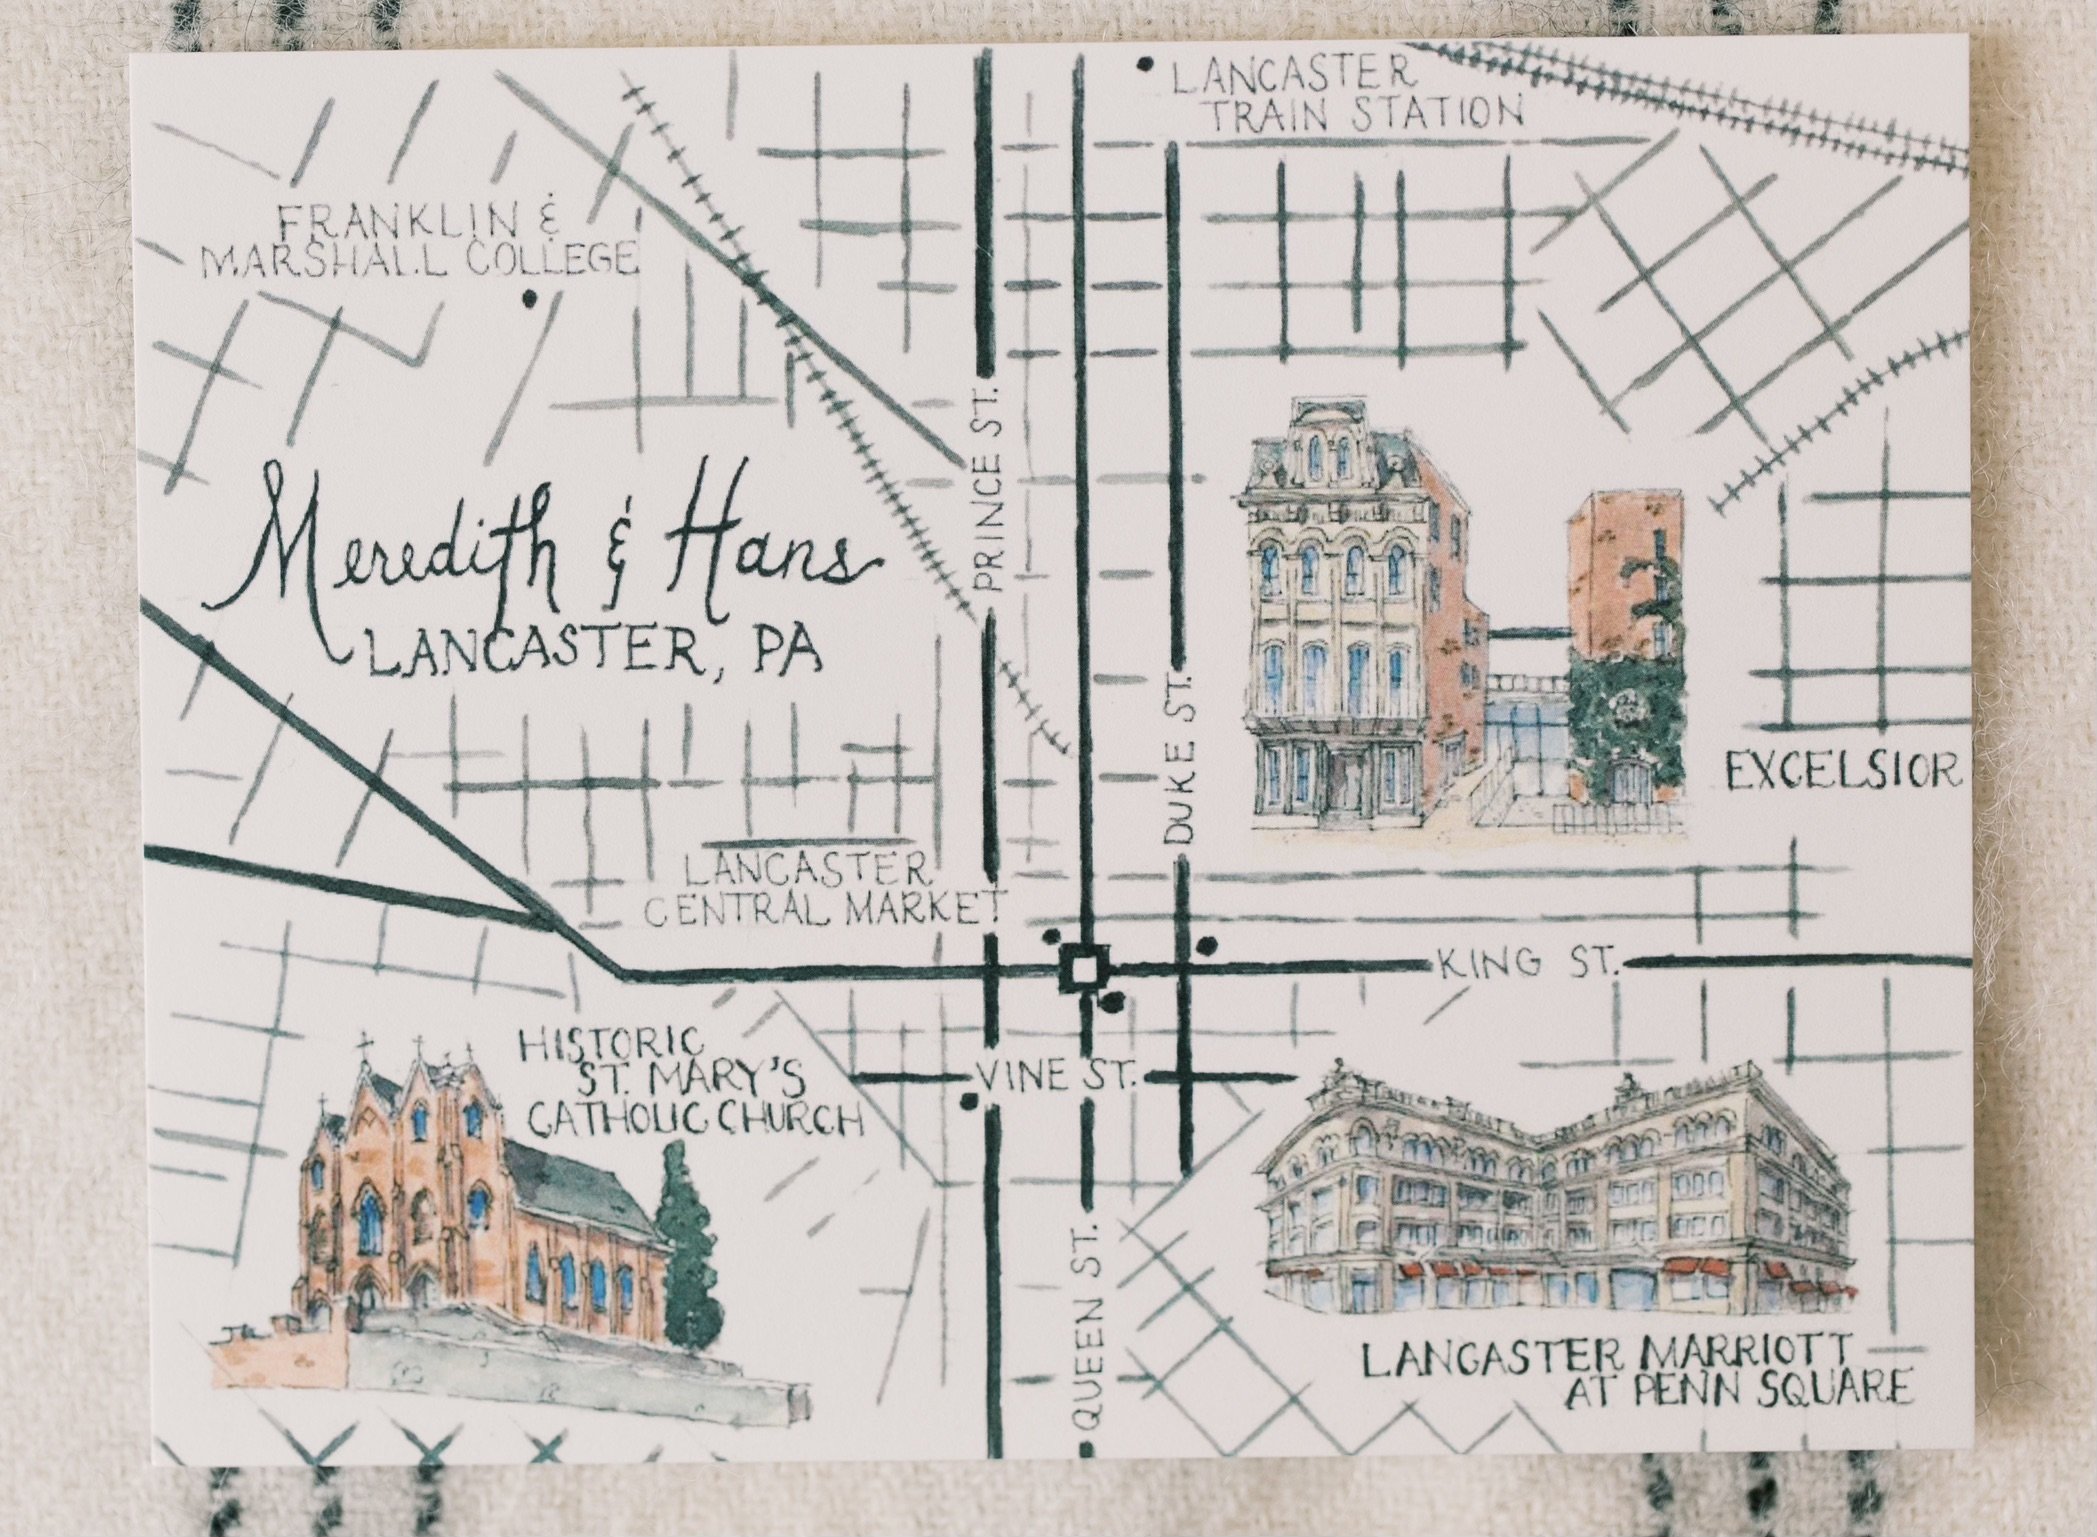 LANCASTER
TRAIN STATION
FRANKLIN &
MARSHALL COLLEGE
PRINCE ST.
Meredith & Hans
LANCASTER, PA
DUKE ST.
EXCELSIOR
LANCASTER
CENTRAL MARKET
KING ST.
HISTORIC
ST. MARY'S
CATHOLIC CHURCH
VINE ST.
QUEEN ST.
LANCASTER MARRIOTT
AT PENN SQUARE